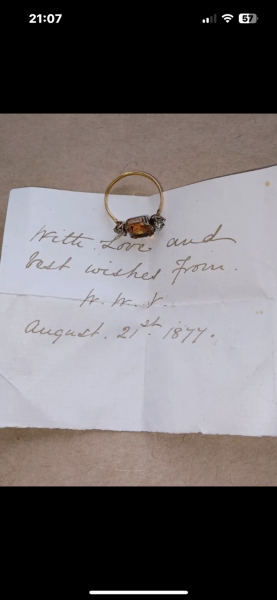 21:07
57
With Love and
best wishes from.
W. W. V.
August. 21st 1877.